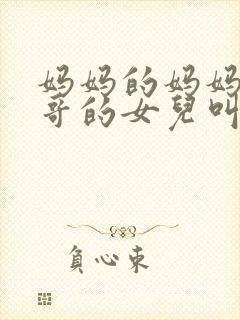 妈妈的妈妈
哥的女兒叫
負心束